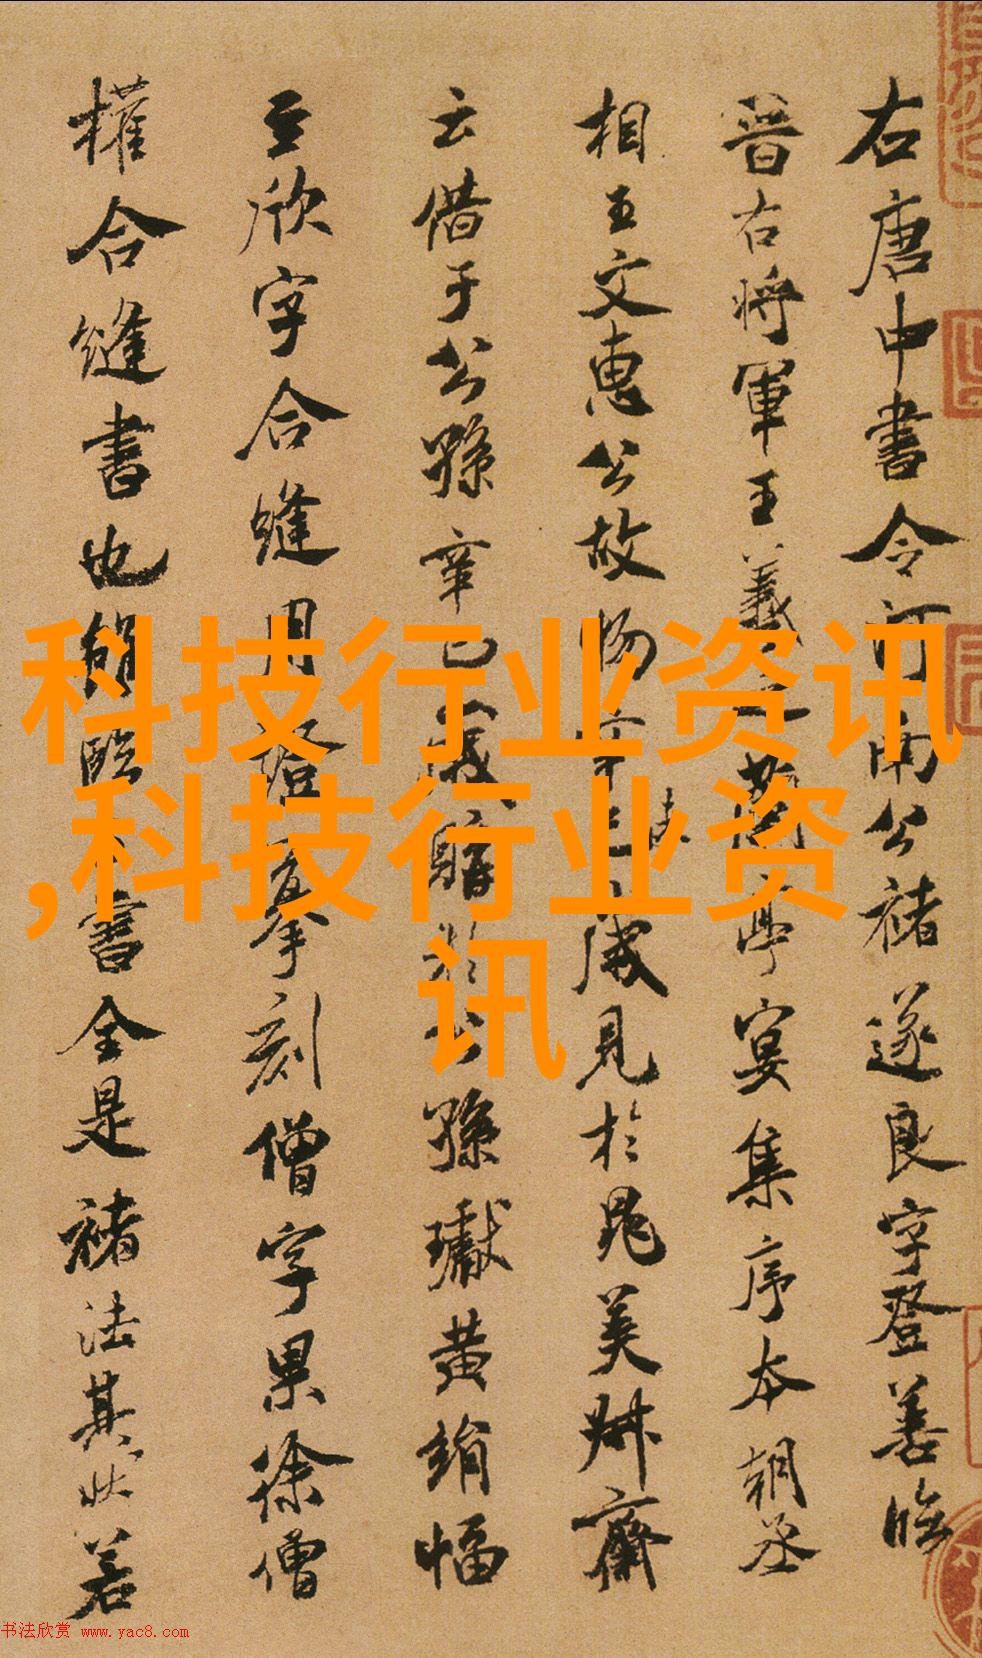 右唐中書令河南公褚遂良字登善臨
晉右將軍王羲之蘭亭宴集序本朝丞
相王文惠公故物辛巳歲見於晁美叔齋
云借于公孫辛巳歲購於公孫瓛黃絹幅
至欣字合縫用證摹刻僧字果徐僧
權合縫書也雖臨書全是褚法其狀若
科技行业资讯
,科技行业资
讯
书法欣赏 www.yac8.com